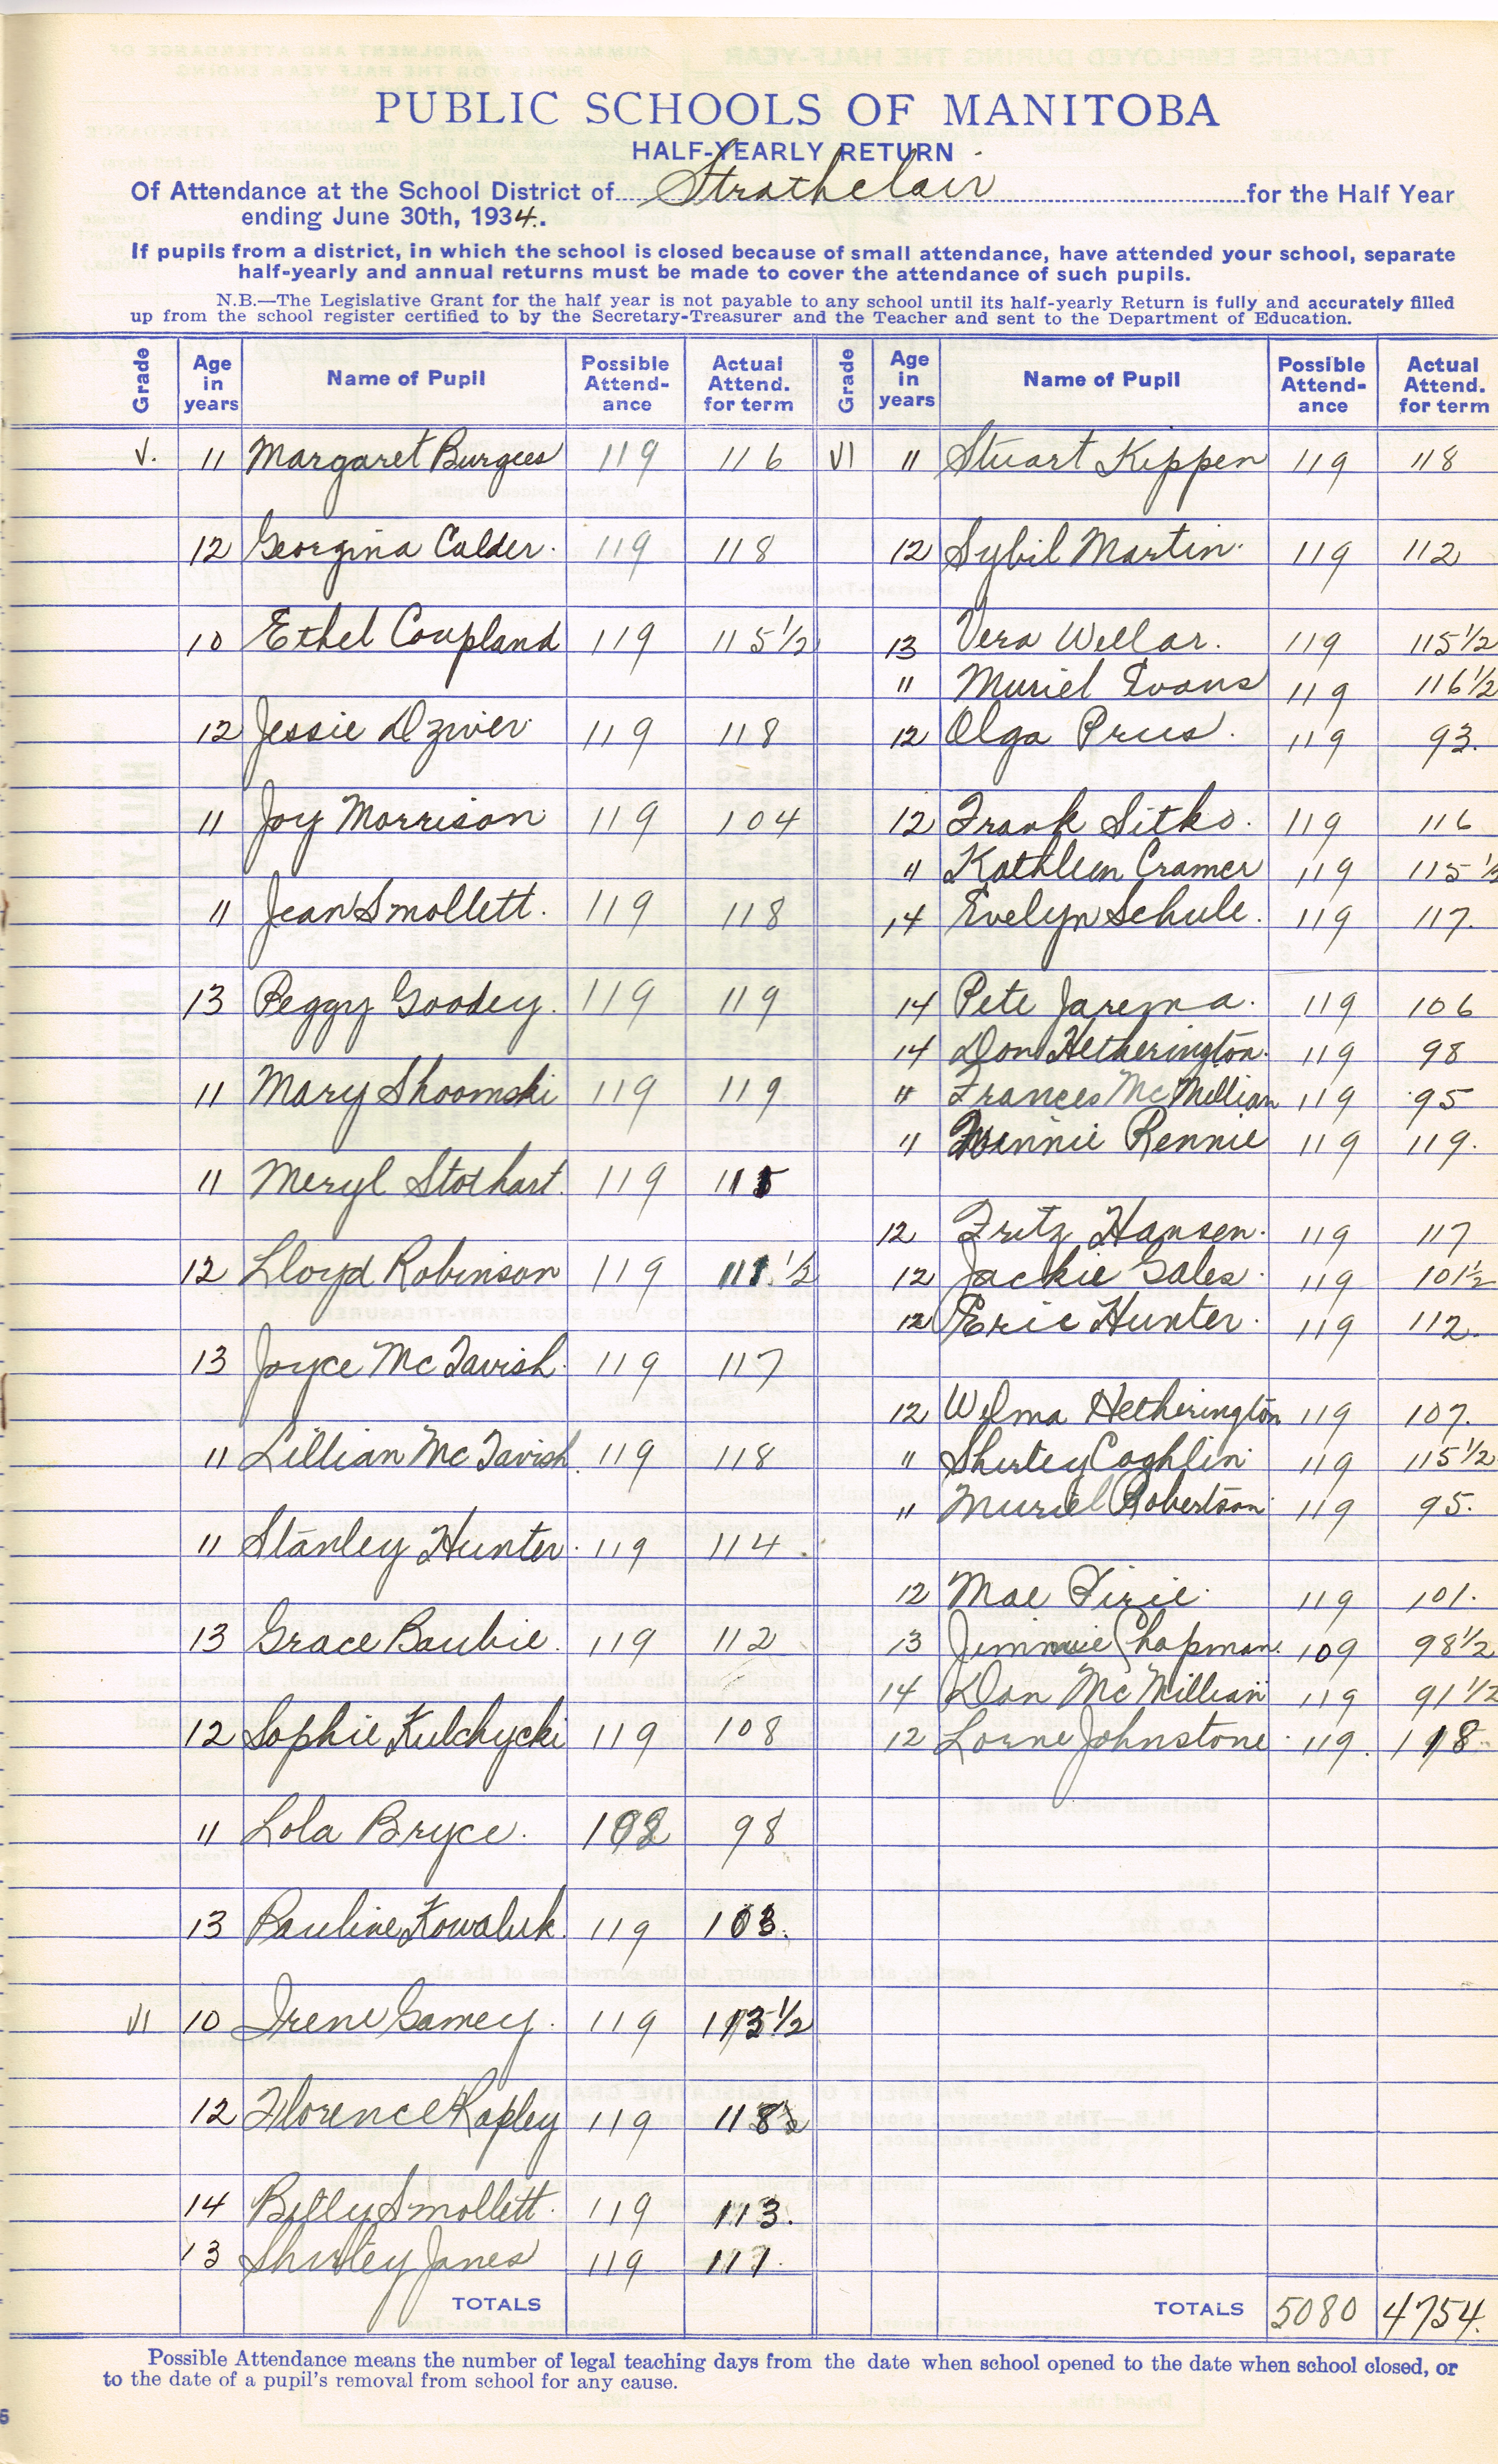 PUBLIC SCHOOLS OF MANITOBA
HALF-YEARLY RETURN
Of Attendance at the School District of Strathclair for the Half Year
ending June 30th, 1934.
If pupils from a district, in which the school is closed because of small attendance, have attended your school, separate
half-yearly and annual returns must be made to cover the attendance of such pupils.
N.B.—The Legislative Grant for the half year is not payable to any school until its half-yearly Return is fully and accurately filled
up from the school register certified to by the Secretary-Treasurer and the Teacher and sent to the Department of Education.
Grade Age in years Name of Pupil Possible Attend-ance Actual Attend. for term Grade Age in years Name of Pupil Possible Attend-ance Actual Attend. for term
V. 11 Margaret Burgess 119 116
12 Georgina Calder. 119 118
10 Ethel Coupland 119 115 1/2
12 Jessie Dziver 119 118
11 Joy Morrison 119 104
11 Jean Smollett. 119 118
13 Peggy Goodey. 119 119
11 Mary Shoomski 119 119
11 Meryl Stothart. 119 115
12 Lloyd Robinson 119 111 1/2
13 Joyce McTavish. 119 117
11 Lillian McTavish. 119 118
11 Stanley Hunter. 119 114
13 Grace Baubie. 119 112
12 Sophie Kulchycki 119 108
11 Lola Bryce. 98
13 Pauline Kowaluk. 119 103.
VI 10 Irene Gamey. 119 113 1/2
12 Florence Kapley 119
14 Billy Smollett. 119 113.
13 Shirley Janes 119 111.
TOTALS
VI 11 Stuart Kippen 119 118
12 Sybil Martin. 119 112
13 Vera Wellar. 119 115 1/2
11 Muriel Evans 119 116 1/2
12 Olga Prus. 119 93.
12 Frank Sitko. 119 116
11 Kathleen Cramer 119 115 1/2
14 Evelyn Schule. 119 117.
14 Pete Jarema. 119 106
14 Don Hetherington. 119 98
11 Frances McMillian 119 95
11 Winnie Rennie 119 119.
12 Fritz Hansen. 119 117
12 Jackie Gales. 119 101 1/2
12 Eric Hunter. 119 112.
12 Wilma Hetherington 119 107.
11 Shirley Coghlin 119 115 1/2
11 Muriel Robertson 119 95.
12 Mae Pirie. 119 101.
13 Jimmie Chapman. 109 98 1/2
14 Dan McMillian 119 91 1/2
12 Lorne Johnstone. 119. 118
TOTALS 5080 4754.
Possible Attendance means the number of legal teaching days from the date when school opened to the date when school closed, or
to the date of a pupil's removal from school for any cause.